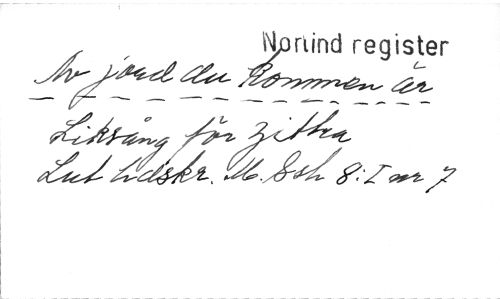 Norlind register
Av jord du kommen är
Liksång för Zittra
Lut hdskr. M. Ssh 8:I nr 7